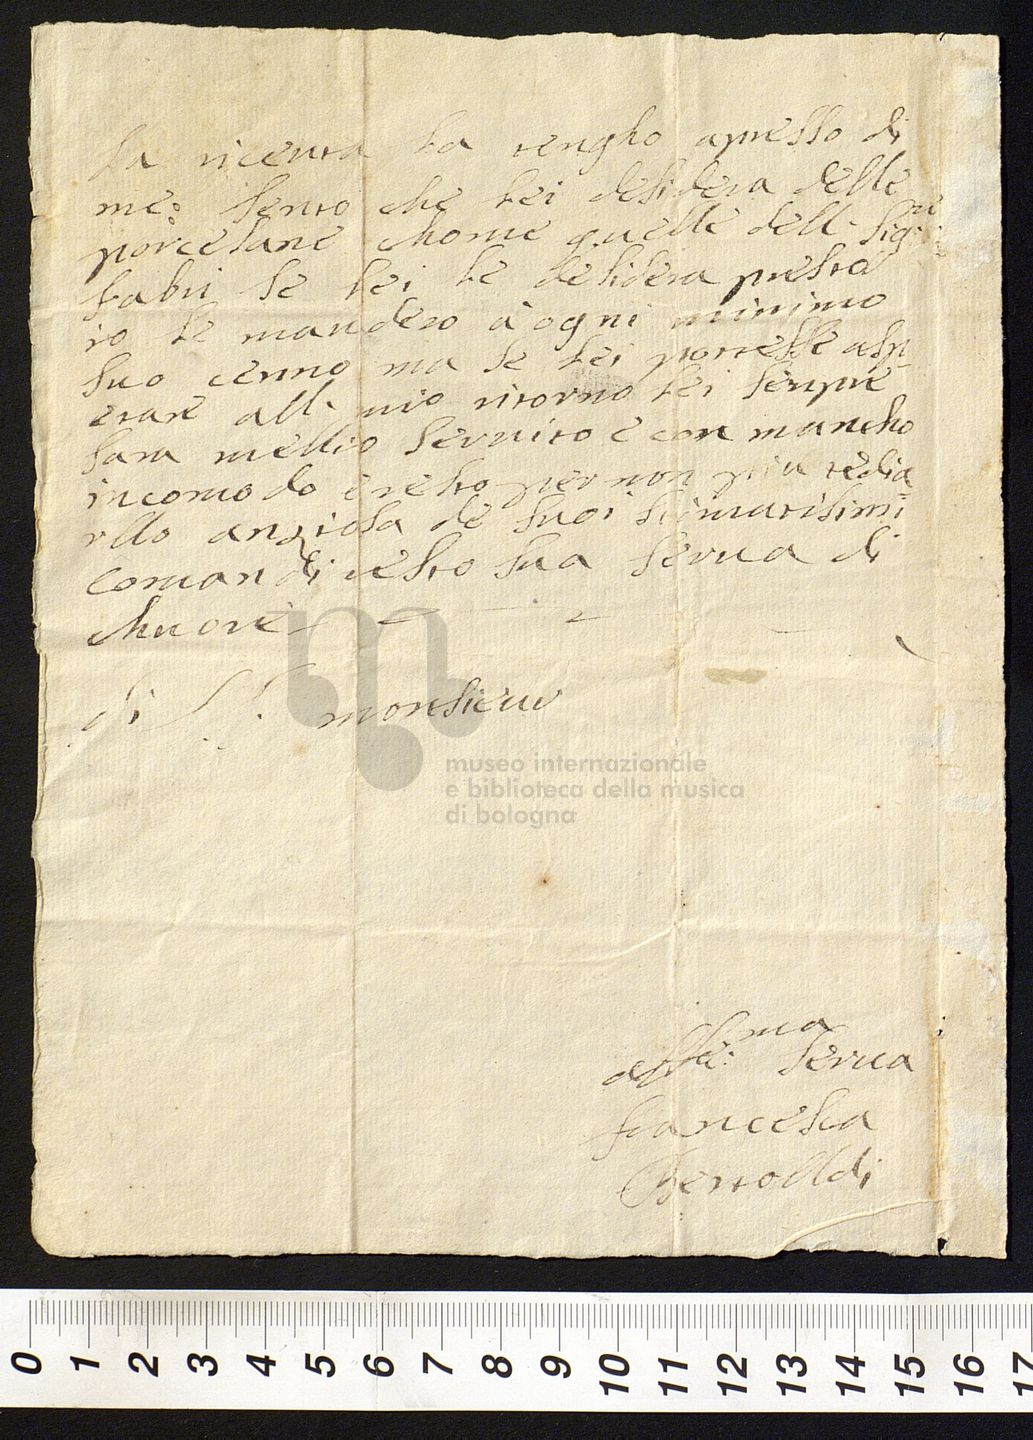 La riceuta La tengho apresso di
me: sento che Lei desidera delle
porcelane chome quelle dell Sig:re
Fabri se Lei Le desidera presto
io Le mandero à ogni minimo
suo cenno ma se Lei potesse asp
etare all mio ritorno Lei senpre
sara mellio servito e con mancho
incomodo e resto per non piu tedia
rllo anziosa de suoi stimatisimi
comandi resto sua serva di
chuore
di monsieur
affe:ma serva
francesca
Bertolldi
museo internazionale
e biblioteca della musica
di bologna
0 1 2 3 4 5 6 7 8 9 10 11 12 13 14 15 16 17